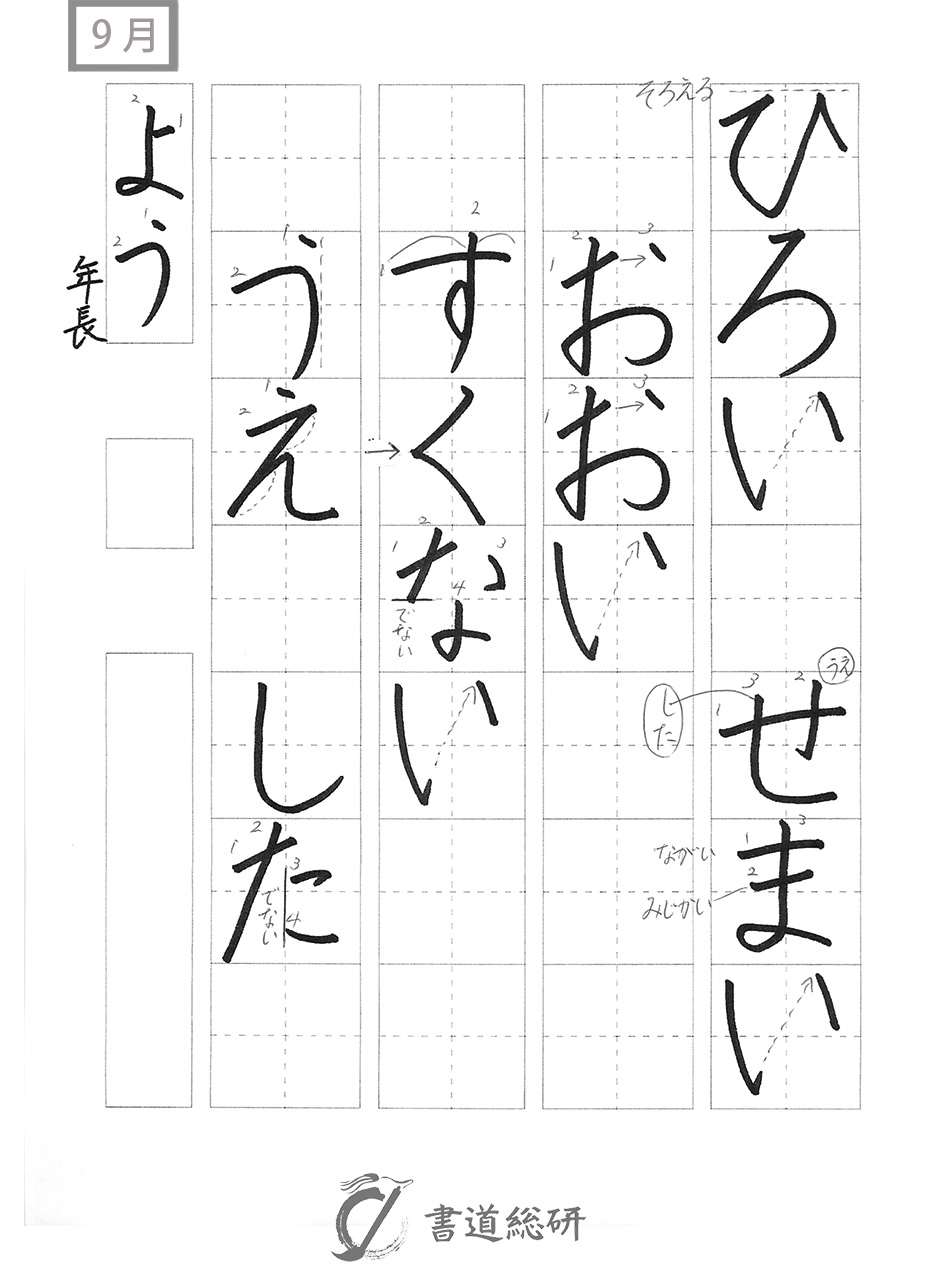 9月
そろえる
ひろい
うえ
した
せまい
ながい
みじかい
おおい
すくない
でない
うえ
した
でない
よう
年長
書道総研